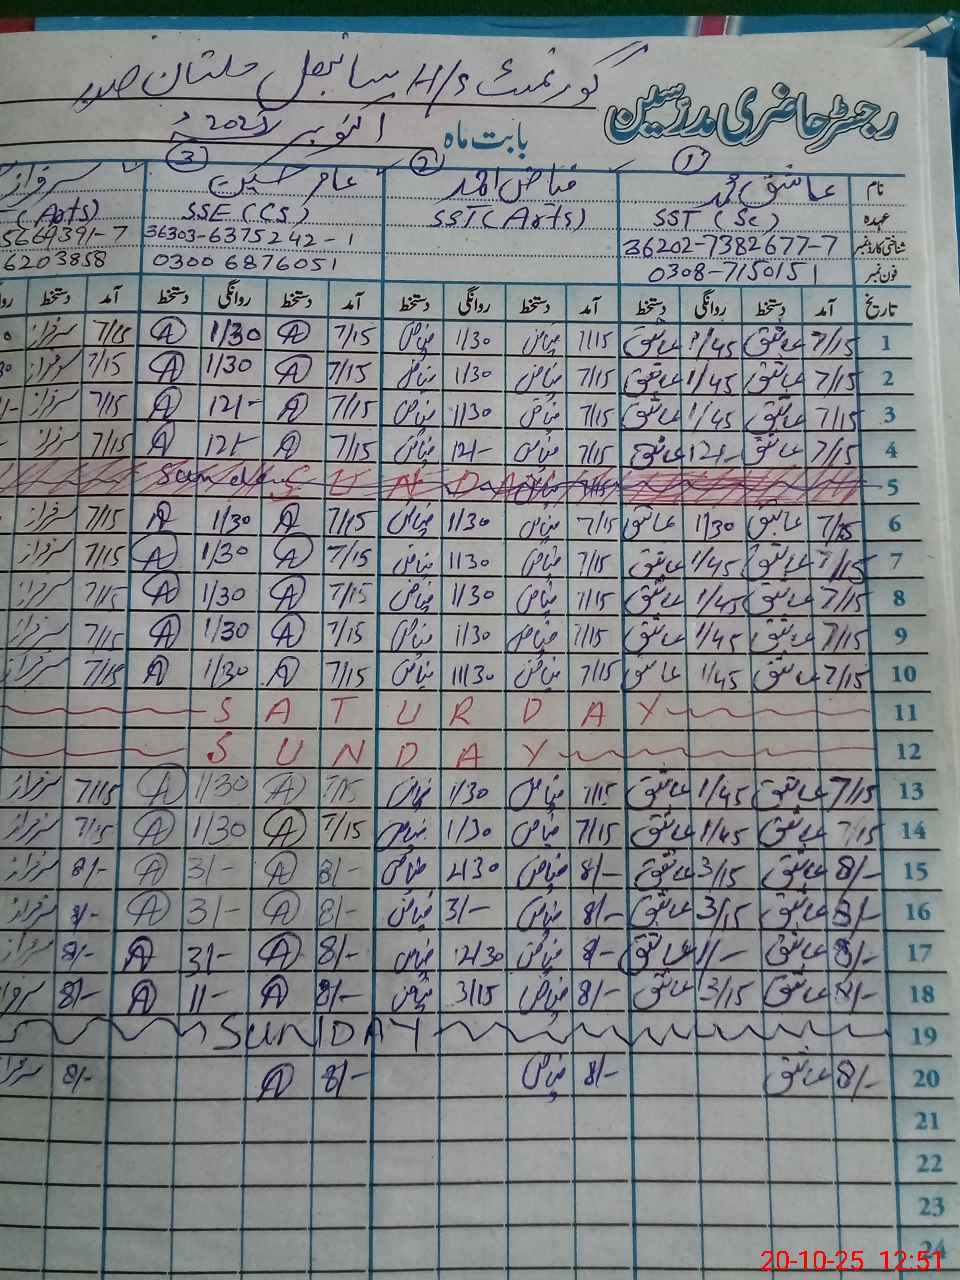 گورنمنٹ H/S سانبھل ملتان صدر
رجسٹر حاضری مدرسین
بابت ماہ اکتوبر 2025ء
① ② ③
نام عاشق محمد فیاض احمد عامر حسین سرفراز
عہدہ SST (Sc) SST (Arts) SSE (CS) (Arts)
شناختی کارڈ نمبر 36202-7382677-7 36303-6375242-1 5669391-7
فون نمبر 0308-7150151 0300 6876051 6203858
تاریخ آمد دستخط روانگی دستخط آمد دستخط روانگی دستخط آمد دستخط روانگی دستخط آمد دستخط
1 7/15 عاشق 1/45 عاشق 7/15 فیاض 1/30 فیاض 7/15 A 1/30 A 7/15 سرفراز
2 7/15 عاشق 1/45 عاشق 7/15 فیاض 1/30 فیاض 7/15 A 1/30 A 7/15 سرفراز
3 7/15 عاشق 1/45 عاشق 7/15 فیاض 1/30 فیاض 7/15 A 12/- A 7/15 سرفراز
4 7/15 عاشق 12/- عاشق 7/15 فیاض 12/- فیاض 7/15 A 12/- A 7/15 سرفراز
5 SUNDAY
6 7/15 عاشق 1/30 عاشق 7/15 فیاض 1/30 فیاض 7/15 A 1/30 A 7/15 سرفراز
7 7/15 عاشق 1/45 عاشق 7/15 فیاض 1/30 فیاض 7/15 A 1/30 A 7/15 سرفراز
8 7/15 عاشق 1/45 عاشق 7/15 فیاض 1/30 فیاض 7/15 A 1/30 A 7/15 سرفراز
9 7/15 عاشق 1/45 عاشق 7/15 فیاض 1/30 فیاض 7/15 A 1/30 A 7/15 سرفراز
10 7/15 عاشق 1/45 عاشق 7/15 فیاض 1/30 فیاض 7/15 A 1/30 A 7/15 سرفراز
11 SATURDAY
12 SUNDAY
13 7/15 عاشق 1/45 عاشق 7/15 فیاض 1/30 فیاض 7/15 A 1/30 A 7/15 سرفراز
14 7/15 عاشق 1/45 عاشق 7/15 فیاض 1/30 فیاض 7/15 A 1/30 A 7/15 سرفراز
15 8/- عاشق 3/15 عاشق 8/- فیاض 2/30 فیاض 8/- A 3/- A 8/- سرفراز
16 8/- عاشق 3/15 عاشق 8/- فیاض 3/- فیاض 8/- A 3/- A 8/- سرفراز
17 8/- عاشق 1/- عاشق 8/- فیاض 12/30 فیاض 8/- A 3/- A 8/- سرفراز
18 8/- عاشق 3/15 عاشق 8/- فیاض 3/15 فیاض 8/- A 11/- A 8/- سرفراز
19 SUNDAY
20 8/- عاشق 8/- فیاض 8/- A 8/- سرفراز
21
22
23
24
20-10-25 12:51